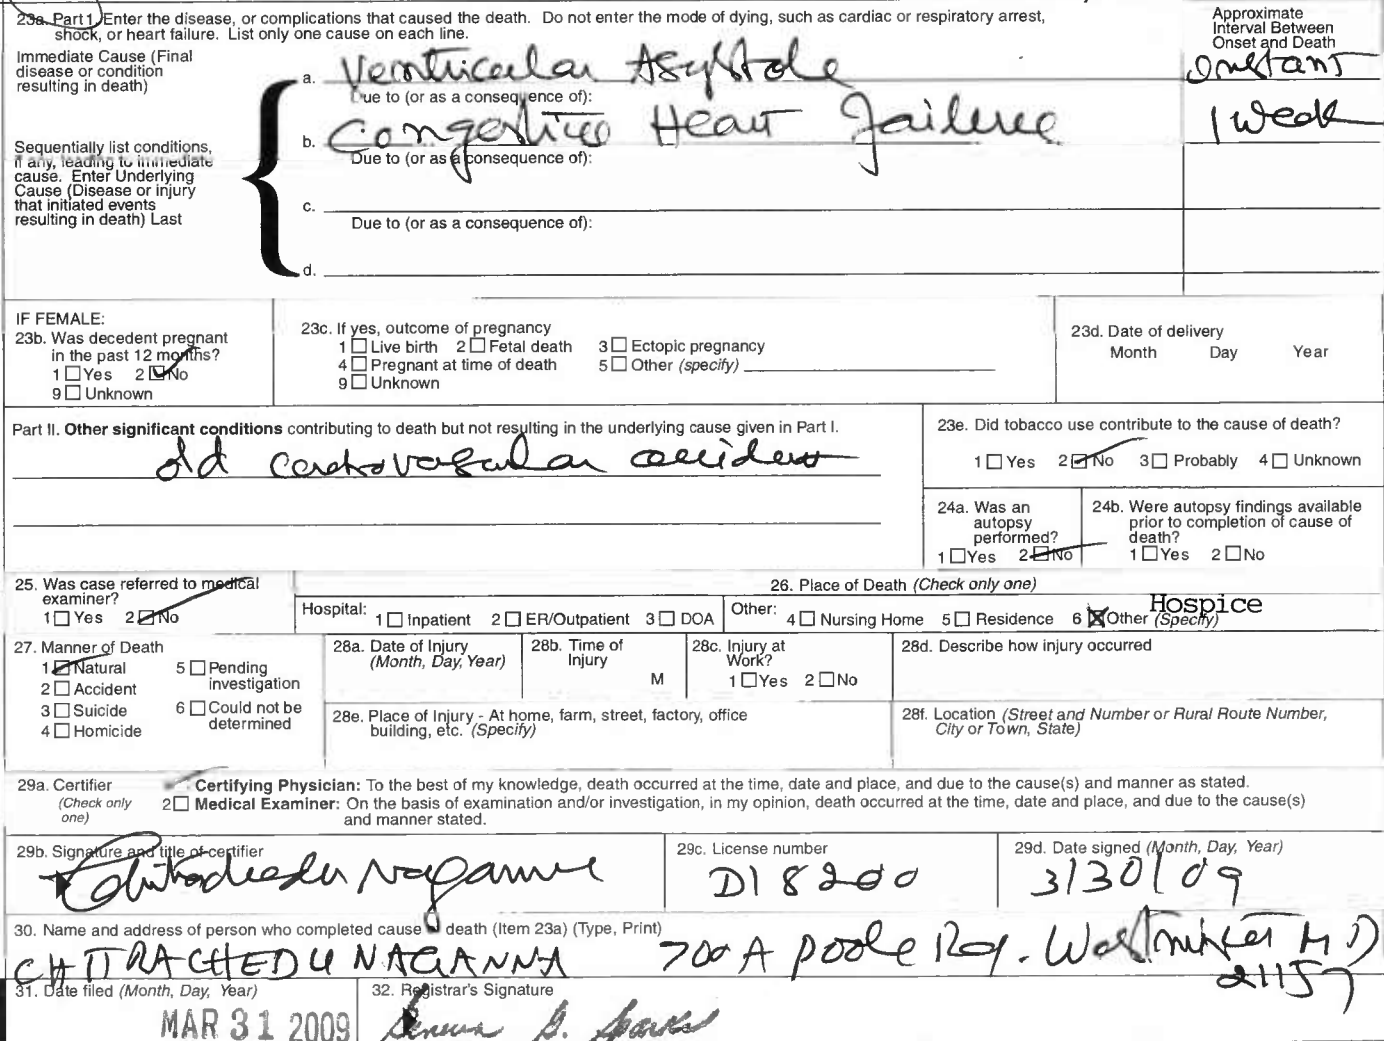 23a. Part 1 Enter the disease, or complications that caused the death. Do not enter the mode of dying, such as cardiac or respiratory arrest,
shock, or heart failure. List only one cause on each line.
Approximate
Interval Between
Onset and Death
Immediate Cause (Final
disease or condition
resulting in death)
a. Ventricular Asystole Instant
Due to (or as a consequence of):
b. Congestive Heart Failure 1 Week
Due to (or as a consequence of):
Sequentially list conditions,
if any, leading to immediate
cause. Enter Underlying
Cause (Disease or injury
that initiated events
resulting in death) Last
c.
Due to (or as a consequence of):
d.
IF FEMALE:
23b. Was decedent pregnant
in the past 12 months?
1 Yes 2 No
9 Unknown
23c. If yes, outcome of pregnancy
1 Live birth 2 Fetal death 3 Ectopic pregnancy
4 Pregnant at time of death 5 Other (specify)
9 Unknown
23d. Date of delivery
Month Day Year
Part II. Other significant conditions contributing to death but not resulting in the underlying cause given in Part I.
old accident
23e. Did tobacco use contribute to the cause of death?
1 Yes 2 No 3 Probably 4 Unknown
24a. Was an
autopsy
performed?
1 Yes 2 No
24b. Were autopsy findings available
prior to completion of cause of
death?
1 Yes 2 No
25. Was case referred to medical
examiner?
1 Yes 2 No
26. Place of Death (Check only one)
Hospital: 1 Inpatient 2 ER/Outpatient 3 DOA
Other: 4 Nursing Home 5 Residence 6 Other (Specify) Hospice
27. Manner of Death
1 Natural 5 Pending
investigation
2 Accident
3 Suicide 6 Could not be
determined
4 Homicide
28a. Date of Injury
(Month, Day, Year)
28b. Time of
Injury
M
28c. Injury at
Work?
1 Yes 2 No
28d. Describe how injury occurred
28e. Place of Injury - At home, farm, street, factory, office
building, etc. (Specify)
28f. Location (Street and Number or Rural Route Number,
City or Town, State)
29a. Certifier
(Check only
one)
Certifying Physician: To the best of my knowledge, death occurred at the time, date and place, and due to the cause(s) and manner as stated.
2 Medical Examiner: On the basis of examination and/or investigation, in my opinion, death occurred at the time, date and place, and due to the cause(s)
and manner stated.
29b. Signature and title of certifier
Chitrachedu Naganna
29c. License number
D18200
29d. Date signed (Month, Day, Year)
3/30/09
30. Name and address of person who completed cause death (Item 23a) (Type, Print)
CHITRACHEDU NAGANNA 700 A Poole Rd. Westminster MD
21157
31. Date filed (Month, Day, Year)
MAR 31 2009
32. Registrar's Signature
Sparks